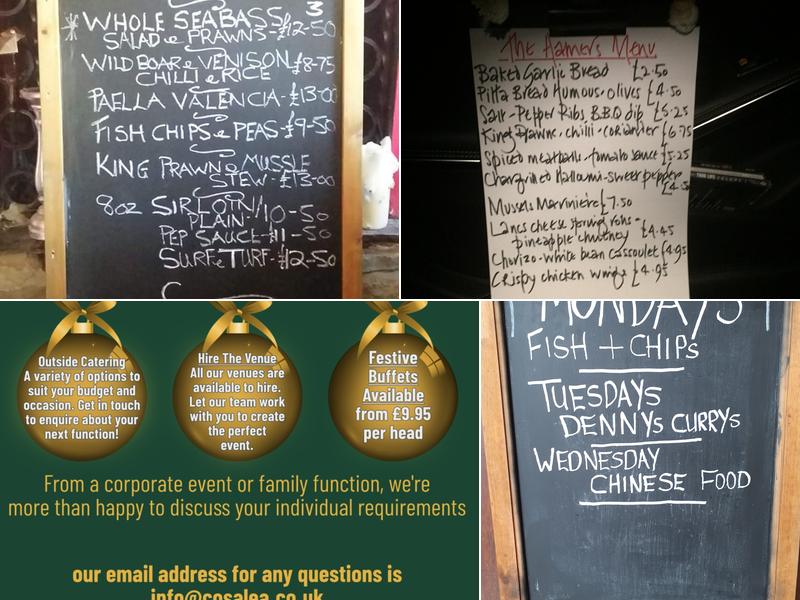 3
WHOLE SEABASS
SALAD & PRAWNS-£12-50
WILD BOAR & VENISON £8-75
CHILLI & RICE
PAELLA VALENCIA-£13-00
FISH CHIPS & PEAS-£9-50
KING PRAWN & MUSSLE
STEW-£13-00
8oz SIRLOIN/10-50
PLAIN-
PEP SAUCE-£11-50
SURF & TURF-£12-50
The Hamers Menu
Baked Garlic Bread £2.50
Pitta Bread Humous-olives £4.50
Salt-Pepper Ribs B.B.Q dip £5.25
King Prawns-chilli-coriander £6.75
Spiced meatballs-tomato sauce £5.25
Chargrilled Halloumi-sweet pepper
£4.50
Mussels Marinière £7.50
Lancs cheese spring rolls-
pineapple chutney £4.45
Chorizo-white bean cassoulet £4.95
Crispy chicken wings £4.95
Outside Catering
A variety of options to
suit your budget and
occasion. Get in touch
to enquire about your
next function!
Hire The Venue
All our venues are
available to hire.
Let our team work
with you to create
the perfect
event.
Festive
Buffets
Available
from £9.95
per head
From a corporate event or family function, we're
more than happy to discuss your individual requirements
our email address for any questions is
info@cosalea.co.uk
MONDAYS
FISH + CHIPS
TUESDAYS
DENNYS CURRYS
WEDNESDAY
CHINESE FOOD